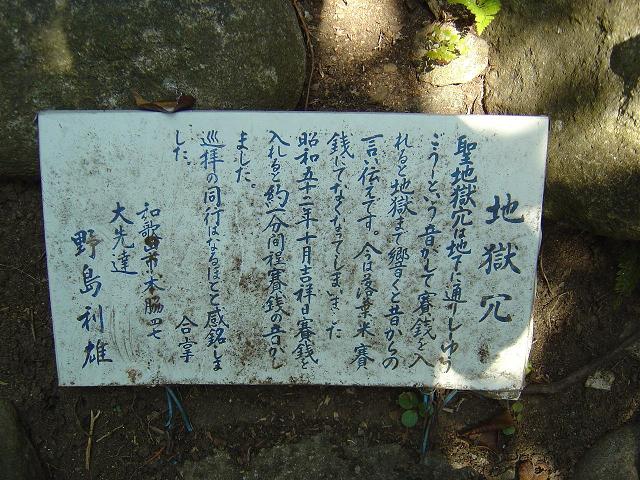 地獄穴
聖地獄穴は地下に通りしゆう
ごうーという音がして賽銭を入
れると地獄まで響くと昔からの
言い伝えです。今は落葉米賽
銭にてなくなってしまいました
昭和五十二年十月吉祥日賽銭を
入れると約一分間程賽銭の音がし
ました。
巡拝の同行はなるほどと感銘しま
した。
合掌
和歌山市本脇四七
大先達
野島利雄